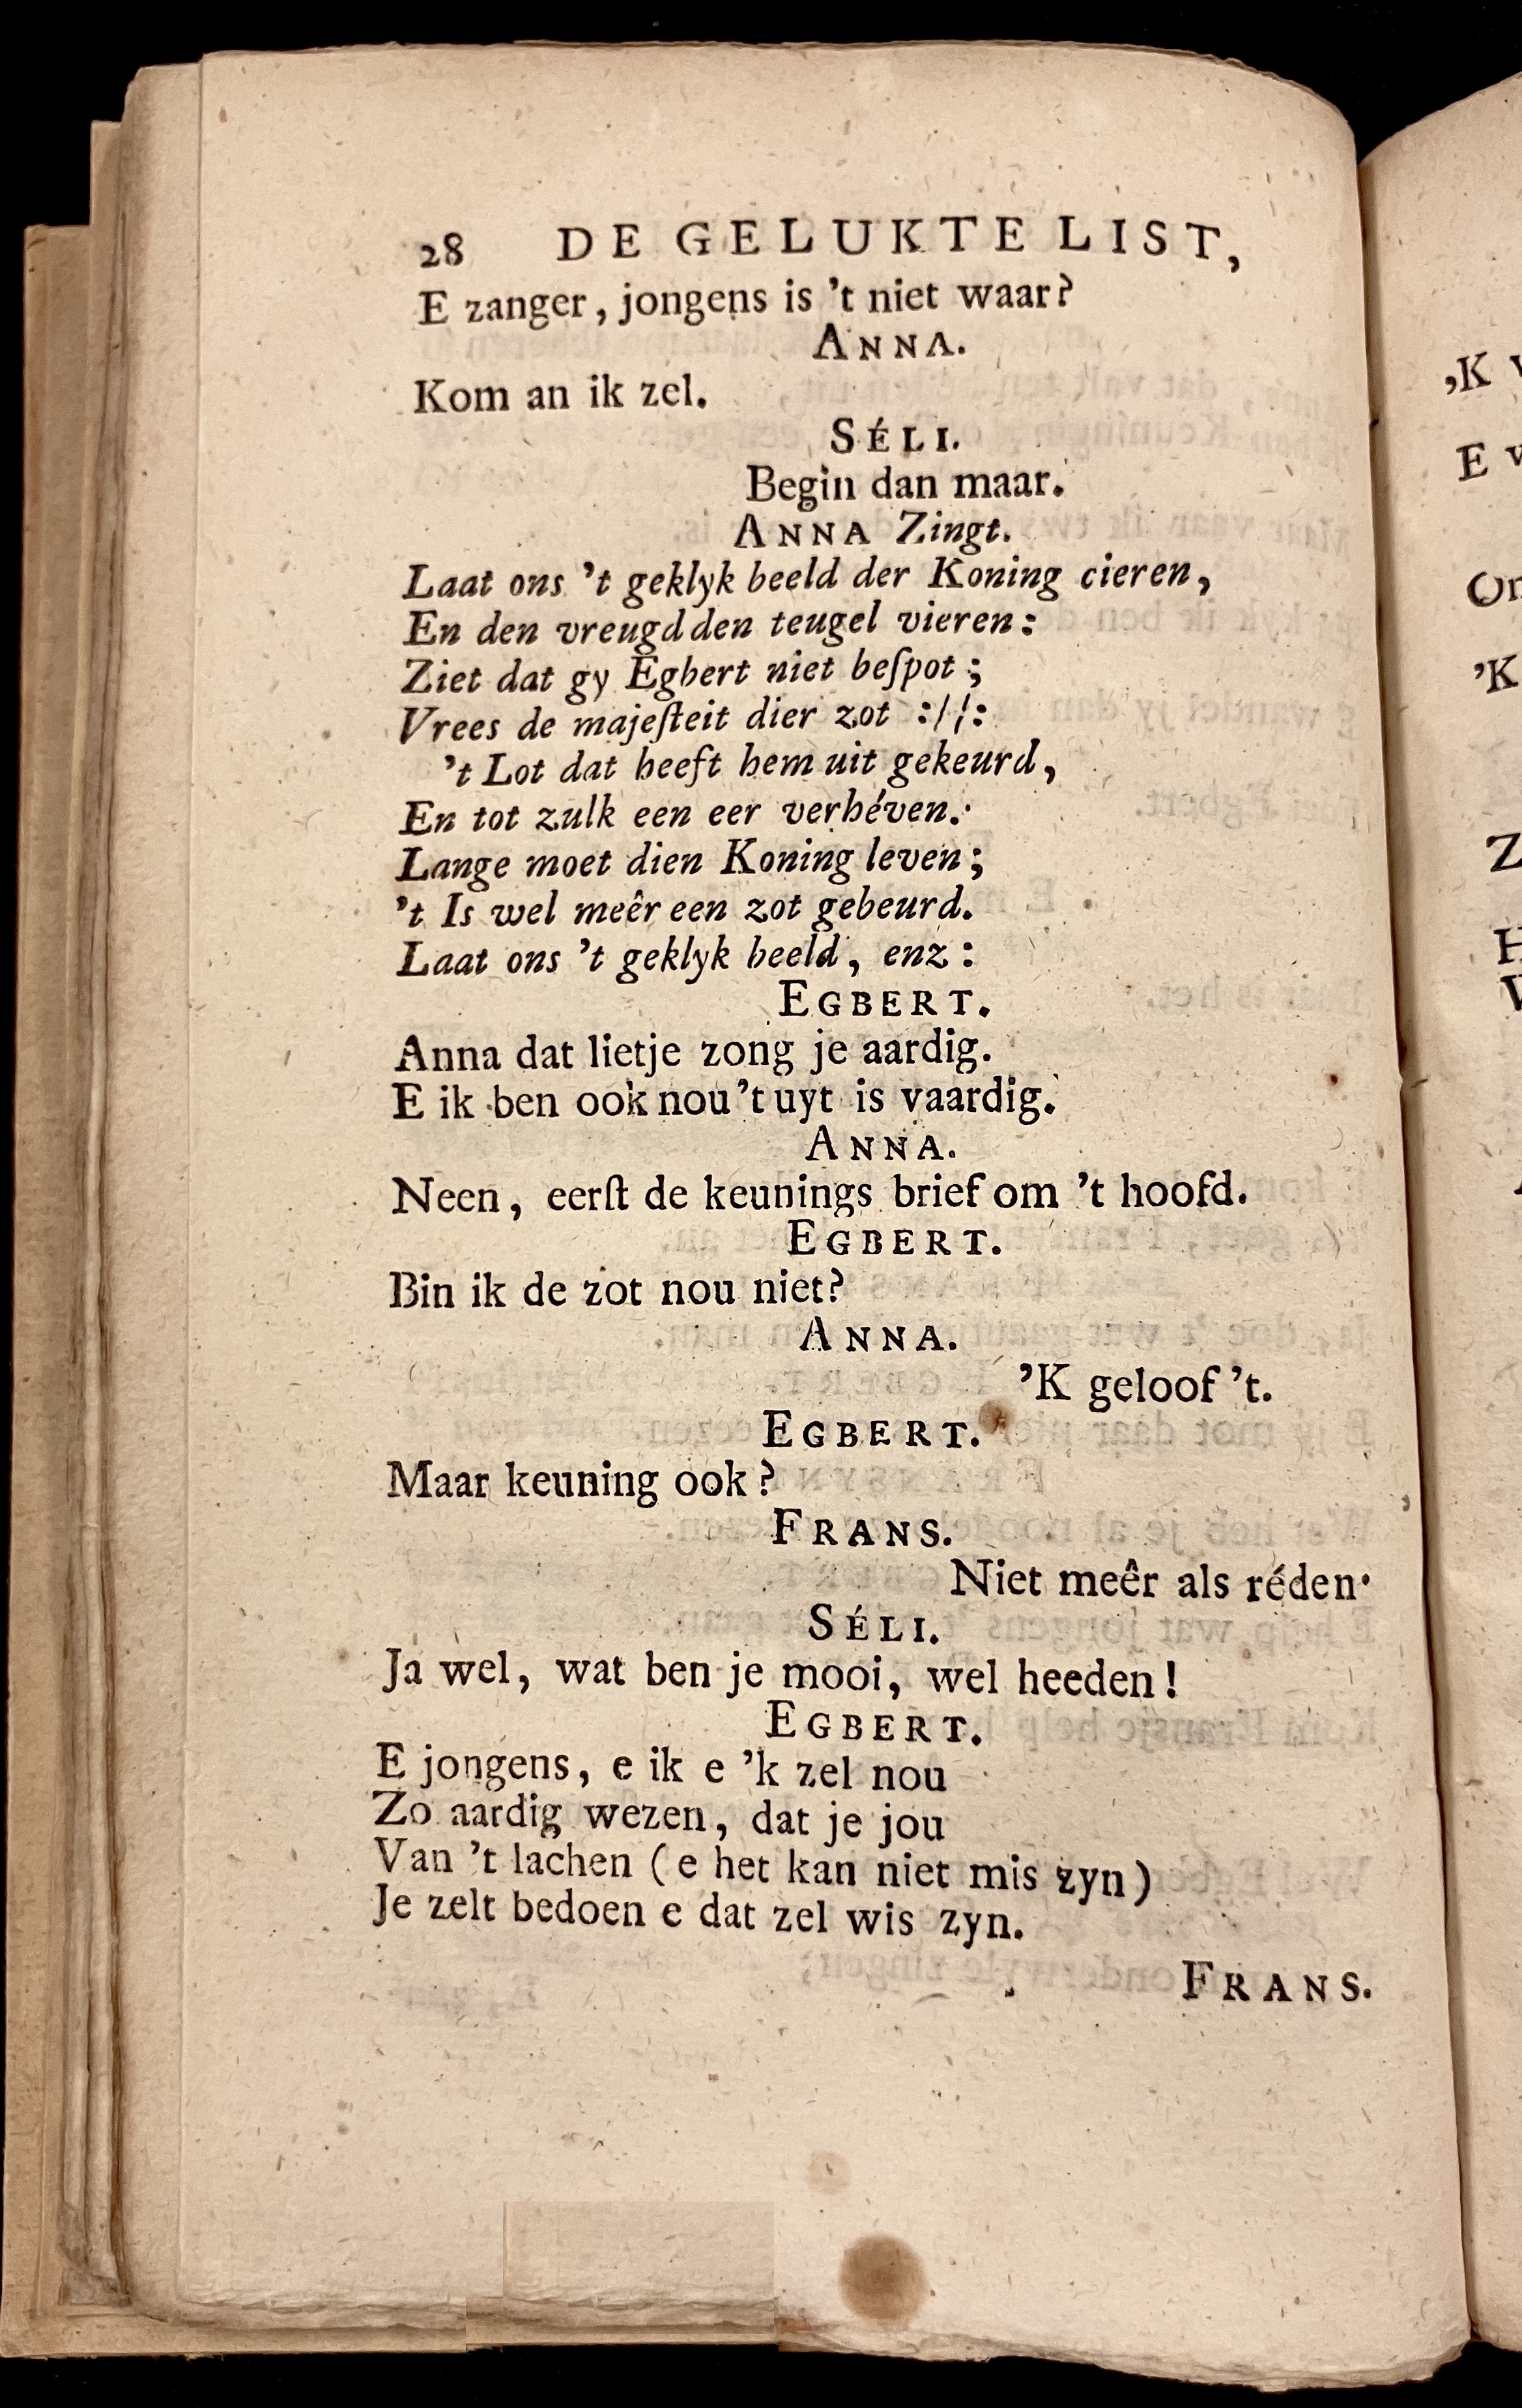 28 DE GELUKTE LIST,
E zanger, jongens is 't niet waar?
ANNA.
Kom an ik zel.
SÉLI.
Begin dan maar.
ANNA Zingt.
Laat ons 't geklyk beeld der Koning cieren,
En den vreugd den teugel vieren:
Ziet dat gy Egbert niet beſpot;
Vrees de majeſteit dier zot :/ /:
't Lot dat heeft hem uit gekeurd,
En tot zulk een eer verhéven.
Lange moet dien Koning leven;
't Is wel meêr een zot gebeurd.
Laat ons 't geklyk beeld, enz:
EGBERT.
Anna dat lietje zong je aardig.
E ik ben ook nou 't uyt is vaardig.
ANNA.
Neen, eerſt de keunings brief om 't hoofd.
EGBERT.
Bin ik de zot nou niet?
ANNA.
'K geloof 't.
EGBERT.
Maar keuning ook?
FRANS.
Niet meêr als réden.
SÉLI.
Ja wel, wat ben je mooi, wel heeden!
EGBERT.
E jongens, e ik e 'k zel nou
Zo aardig wezen, dat je jou
Van 't lachen (e het kan niet mis zyn)
Je zelt bedoen e dat zel wis zyn.
FRANS.
,K
E
On
'K
Z
H